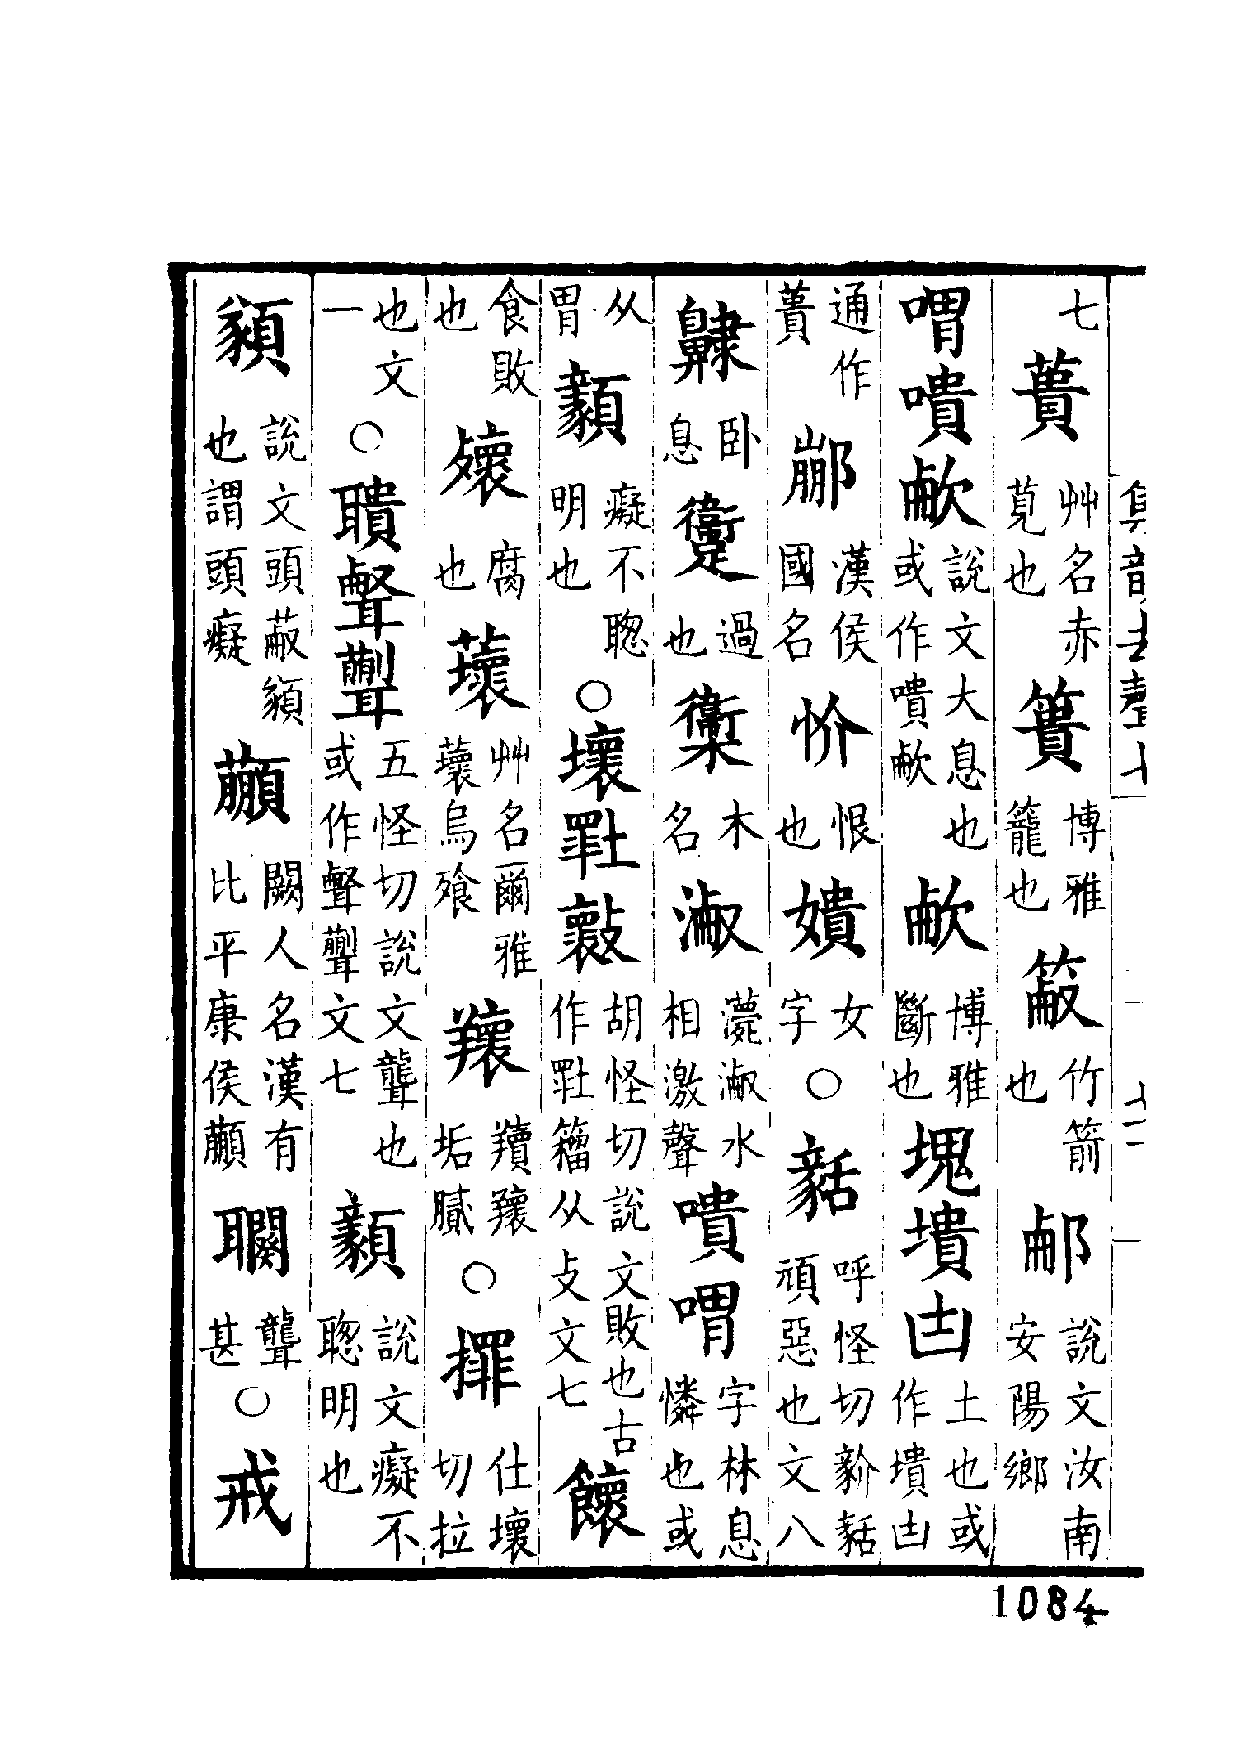 集韻去聲七
七蕢艸名赤莧也簣博雅籠也𥯦竹箭也𨛖說文汝南安陽鄉
喟嘳㕟說文大息也或作嘳㕟㕟博雅斷也塊墤凷土也或作墤凷
通作蕢𨞇漢侯國名㤥恨也嬇女字○䜐呼怪切䜘䜐頑惡也文八
齂臥息𧗽過也𧗾木名㵒㶐㵒水相激聲嘳喟字林息憐也或
从胃顡癡不聰明也○壞𡍦𣀩胡怪切說文敗也古作𡍦籀从攴文七𩟮
食敗也㱮腐也蘾艸名爾雅蘾烏飱𦏨羵𦏨垢膩○𢷏仕壞切拉
也文一○聵𦖭𦗺五怪切說文聾也或作𦖭𦗺文七顡說文癡不聰明也
䫥說文頭蔽䫥也謂頭癡蘱闕人名漢有比平康侯蘱䦱聾甚○戒
1084